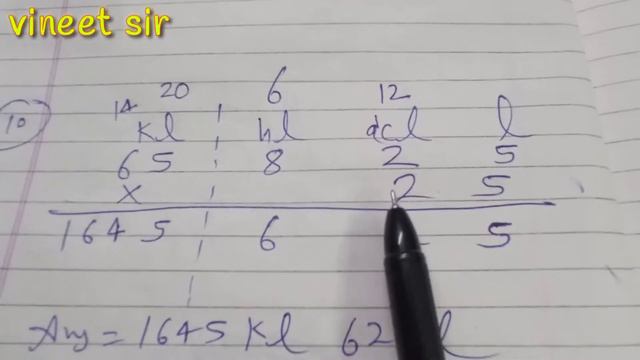 vineet sir
20 6 12
14
10 kl hl dcl l
65 8 2 5
× 2 5
1645 6 5
Ans = 1645 Kl 62 l